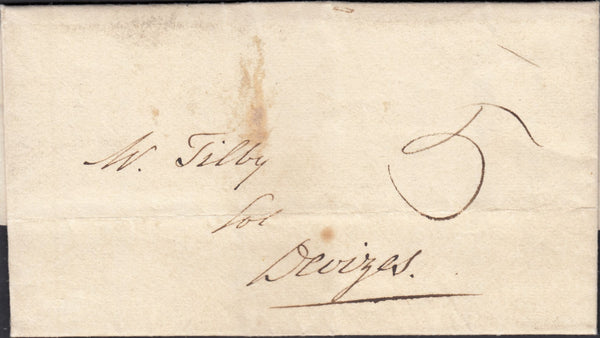 Mr. Tilby 5
Sol
Devizes.